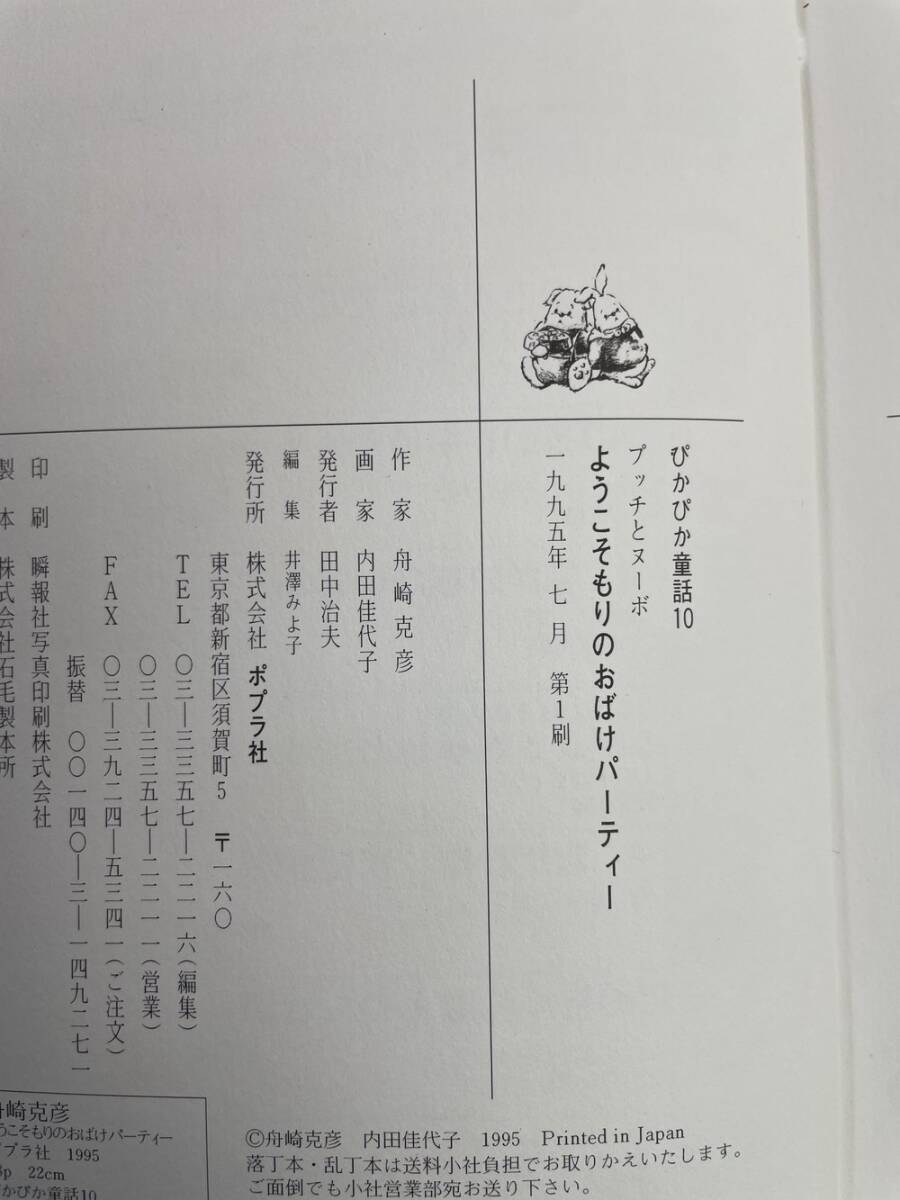 ぴかぴか童話10
プッチとヌーボ
ようこそもりのおばけパーティー
一九九五年 七月 第1刷
作家 舟崎克彦
画家 内田佳代子
発行者 田中治夫
編集 井澤みよ子
発行所 株式会社 ポプラ社
東京都新宿区須賀町5 〒一六〇
TEL 〇三―三三五七―二二一六(編集)
〇三―三三五七―二二一一(営業)
FAX 〇三―三九二四―五三四一(ご注文)
振替 〇〇一四〇―三―一四九二七一
印刷 瞬報社写真印刷株式会社
製本 株式会社石毛製本所
舟崎克彦
うこそもりのおばけパーティー
プラ社 1995
p 22cm
かぴか童話10
©舟崎克彦 内田佳代子 1995 Printed in Japan
落丁本・乱丁本は送料小社負担でお取りかえいたします。
ご面倒でも小社営業部宛お送り下さい。